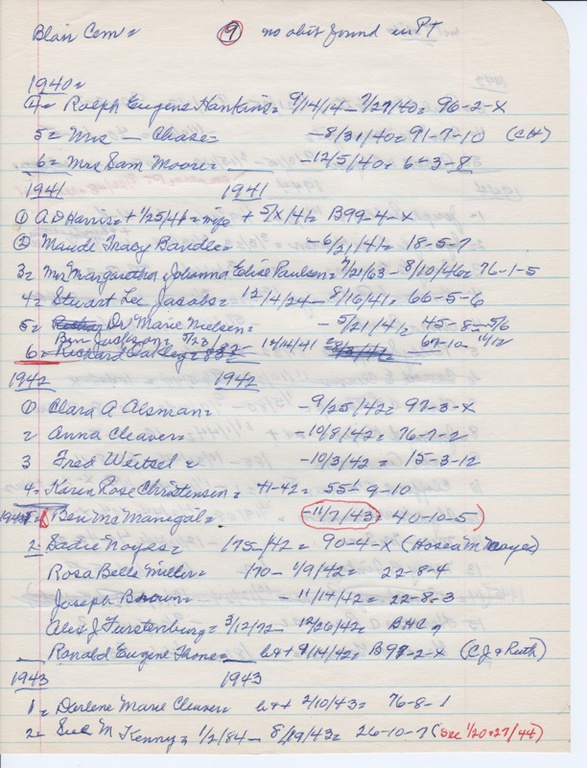 Blair Cem= 9 no obit found in PT
1940=
4= Ralph Eugene Hankins= 9/14/14 - 7/27/40= 96-2-X
5= Mrs — Chase= -8/31/40= 91-7-10 (CH)
6= Mrs Sam Moore= -12/5/40= 6-3-8
1941 1941
① A D Harris= + 1/25/41= wife + 5/X/41= B99-4-X
② Maude Tracy -6/21/41= 18-5-7
3= Mrs Margaretha Johanna Elise Paulsen= 7/21/63 - 8/10/46= 76-1-5
4= Stuart Lee Jacobs= 12/4/24 - 8/16/41= 66-5-6
5= Dr Marie Nielsen= -5/21/41= 45-8-5/6
Ben Jackson= 5/23/ - 12/14/41 67-10-11/12
6= Richard Oakley= 83= 8/3/42=
1942 1942
① Clara A Alsman= -9/25/42= 97-3-X
2 Anna Cleaver= -10/8/42= 76-7-2
3 Fred Weitzel= -10/3/42= 15-3-12
4= Karen Rose Christensen= 41-42= 55-9-10
1943 Ben Mc Manegal= -11/7/43= 40-10-5)
2= Sadie Noyes= 175-/42= 90-4-X (Hosea M Noyes)
Rosa Belle Miller= 1/70- 1/9/42= 22-8-4
Joseph Brown= -11/14/42= 22-8-3
Alex J Furstenburg= 3/12/72- 12/26/42= BHC
Ronald Eugene Thone= b++ 9/14/42= B97-2-X (CJ + Ruth)
1943 1943
1= Darlene Marie Cleaver= b++ 2/10/43= 76-8-1
2= Sue M Kenny= 1/2/84- 8/19/43= 26-10-7 (see 1/20+27/44)